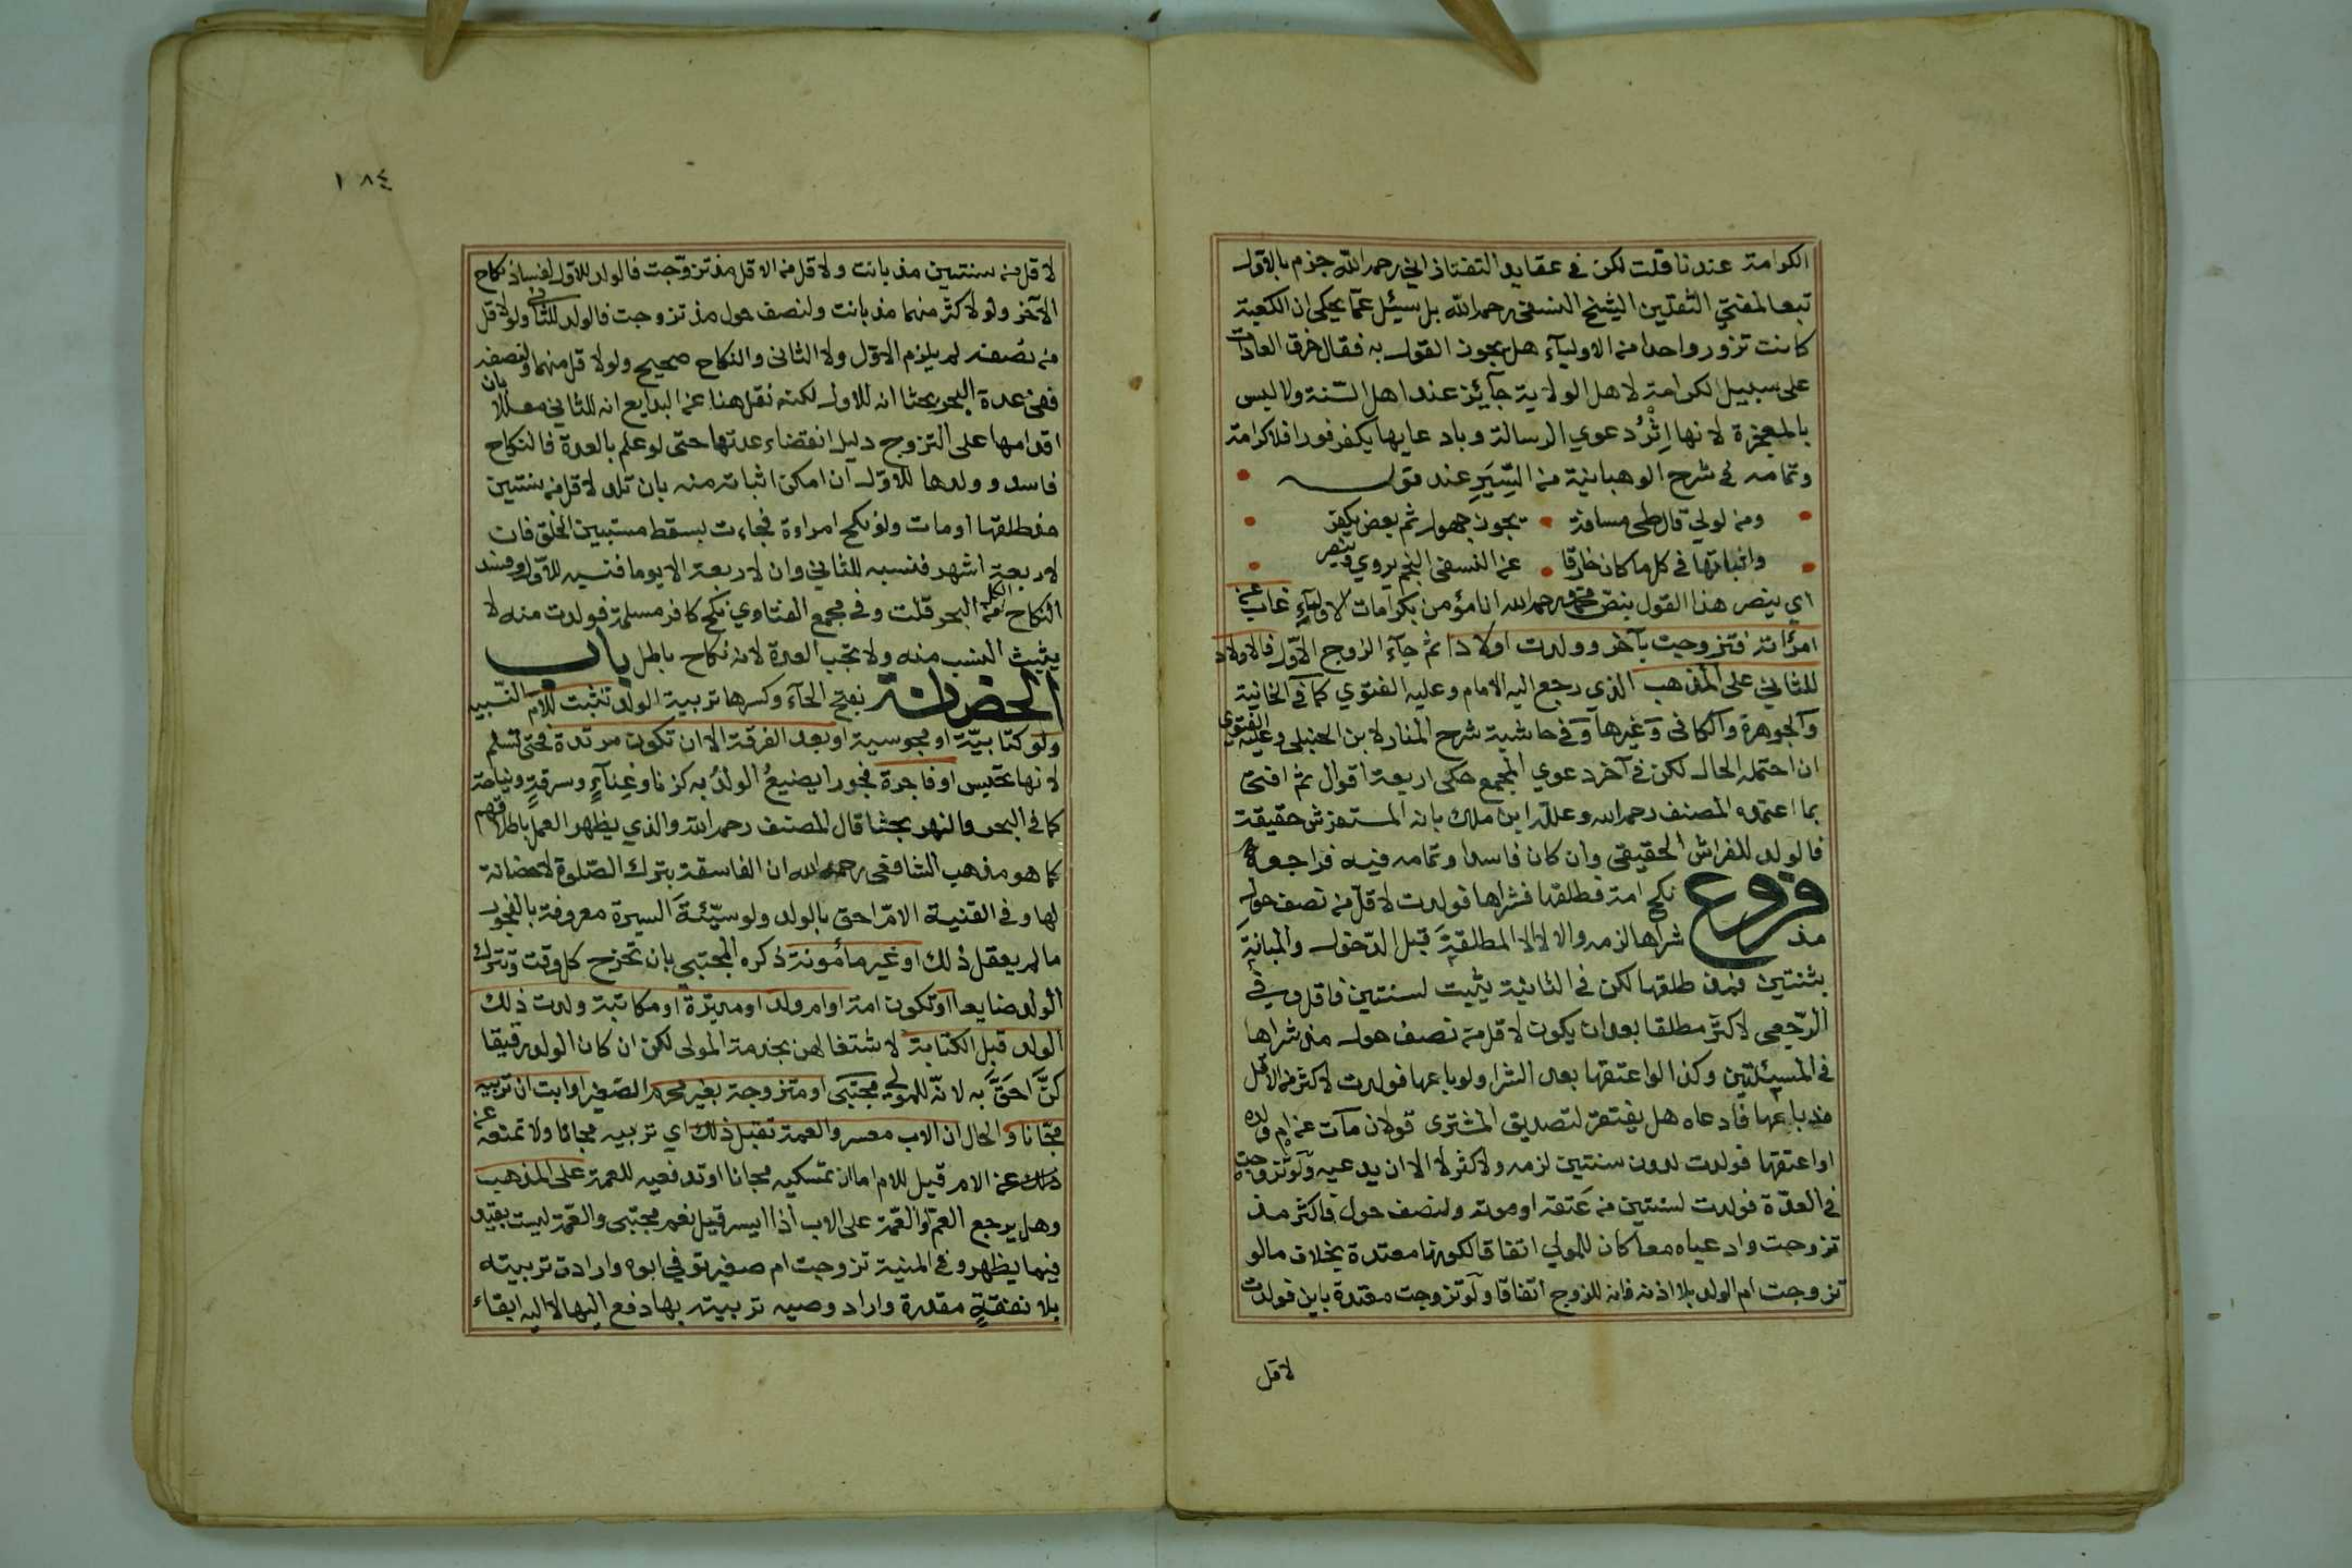 الكرامة عندنا قلت لكن في عقايد التفتازاني رحمه الله جزم بالاول
تبعا لمفتي الثقلين الشيخ النسفي رحمه الله بل سيئل عما يحكى ان الكعبة
كانت تزور واحدا من الاوليآء هل يجوز القول به فقال خرق العادات
على سبيل الكرامة لاهل الولاية جآئز عند اهل السّنة ولا ليس
بالمعجزة لانها اِثْرُ دعوي الرسالة وبادعايها يكفر فورا فلا كرامة
وتمامه في شرح الوهبانية من السِّيَرِ عند قوله
ومن لولي قال طي مسافة يجوز جهول ثم بعض يكفر
واثباتها في كل ما كان خارقا عن النسفي النجم يروي وينصر
اي ينصر هذا القول بنص محمد رحمه الله انا مؤمن بكرامات الاوليآءِ غاب عن
امرأته فتزوجت بآخر وولدت اولادا ثم جآء الزوج الاوّل فالاولاد
للثاني على المذهب الذي رجع اليه الامام وعليه الفتوي كما في الخانية
والجوهرة والكافي وغيرها وفي حاشية شرح المنار لابن الحنبلي وعليه الفتوي
ان احتمله الحال لكن في آخر دعوي المجمع حكى اربعة اقوال ثم افتى
بما اعتمده المصنف رحمه الله وعلله ابن ملك بانه المستفرش حقيقة
فالولد للفراش الحقيقي وان كان فاسدا وتمامه فيه فراجعه
فروع نكح امة فطلقها فشراها فولدت لاقل من نصف حول
مذ شراها لزمه والا لا الا المطلقة قبل الدّخول والمبانة
بثنتين فمذ طلقها لكن في الثانية يثبت لسنتين فاقل وفي
الرّجعي لاكثر مطلقا بعد ان يكون لاقل من نصف حول مذ شراها
في المسيئلتين وكذا لو اعتقها بعد الشرا ولو باعها فولدت لاكثر من الاقل
مذ باعها فادعاه هل يفتقر لتصديق المشتري قولان مآت عن ام ولده
او اعتقها فولدت لدون سنتين لزمه ولاكثر لا الا ان يدعيه ولو تزوجت
في العدّة فولدت لسنتين من عتقه او موته ولنصف حول فاكثر مذ
تزوجت وادعياه معا كان للمولي اتفاقا لكونها معتدة بخلاف ما لو
تزوجت ام الولد بلا اذنه فانه للزوج اتفاقا ولو تزوجت معتدة باين فولدت
لاقل
١٨٤
لاقل من سنتين مذ بانت ولاقل من الاقل مذ تزوّجت فالولد للاول لفساد نكاح
الآخر ولو لاكثر منهما مذ بانت ولنصف حول مذ تزوجت فالولد للثاني ولو لاقل
من نصفه لم يلزم الاوّل ولا الثاني والنكاح صحيح ولو لاقل منهما ولنصفه
ففي عدة البحر بحثا انه للاول لكنه نقل هنا عن البدايع انه للثاني معللا بان
اقدامها على التزوج دليل انقضاء عدتها حتى لو علم بالعدة فالنكاح
فاسد وولدها للاوّل ان امكن اثباته منه بان تلد لاقل من سنتين
مذ طلقها او مات ولو نكح امراءة فجاءت بسقط مستبين الخلق فان
لاربعة اشهر فنسبه للثاني وان لاربعة الا يوما فنسبه للاوّل وفسد
النكاح الكل من البحر قلت وفي مجمع الفتاوي نكح كافر مسلمة فولدت منه لا
يثبت النسب منه ولا تجب العدة لانه نكاح باطل باب
الحضانة بفتح الحآء وكسرها تربية الولد تثبت للام النّسبية
ولو كتابيّة او مجوسية او بعد الفرقة الا ان تكون مرتدة فحتى تسلم
لانها تحبس او فاجرة فجورا يضيعُ الولدُ به كزنا وغِنآءٍ وسرقةٍ ونياحة
كما في البحر والنهر بحثا قال المصنف رحمه الله والذي يظهر العمل باطلاقهم
كما هو مذهب الشافعي رحمه الله ان الفاسقة بترك الصّلوة لا حضانة
لها وفي القنية الامّ احق بالولد ولو سيّئةَ السيرة معروفة بالفجور
ما لم يعقل ذلك او غير مأمونة ذكره المجتبي بان تخرج كل وقت وتترك
الولد ضايعا او تكون امة او ام ولد او مدبرة او مكاتبة ولدت ذلك
الولد قبل الكتابة لاشتغالهن بخدمة المولى لكن ان كان الولد رقيقا
كنَّ احَقَّ به لانّه للمولي مجتبى او متزوجة بغير محرم الصغير او ابت ان تربيه
مجّانا والحال ان الاب معسر والعمة تقبل ذلك اي تربيه مجانا ولا تمنعه عن
ذلك عن الام قيل للام اما ان تمسكيه مجانا او تدفعيه للعمة على المذهب
وهل يرجع العمّ والعمّة على الاب اذا ايسر قيل نعم مجتبى والعمّة ليست بقيد
فيما يظهر وفي المنية تزوجت ام صغير توفي ابوه وارادت تربيته
بلا نفقةٍ مقدرة واراد وصيه تربيته بها دفع اليها لا اليه ابقاء